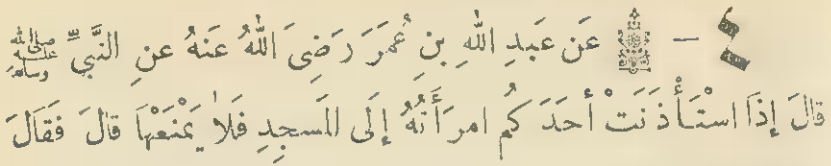 ٤ - عَن عَبدِ اللهِ بنِ عُمَرَ رَضِىَ اللهُ عَنهُ عنِ النَّبىِّ ﷺ
قالَ إذَا اسْتَأْذَنَتْ أحَدَكُم امرَأَتُهُ إلَى المَسجِدِ فَلاَ يَمْنَعْهَا قالَ فَقالَ